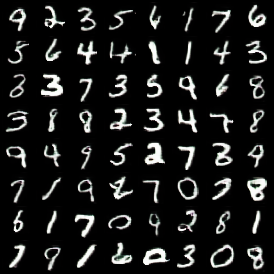 9 2 3 5 6 1 7 6
5 6 4 4 1 1 4 3
8 3 7 3 5 9 6 8
3 8 8 2 3 4 7 8
9 4 9 5 2 7 3 9
7 1 9 8 7 0 7 8
6 1 7 0 9 2 8 1
7 9 1 6 0 3 0 8